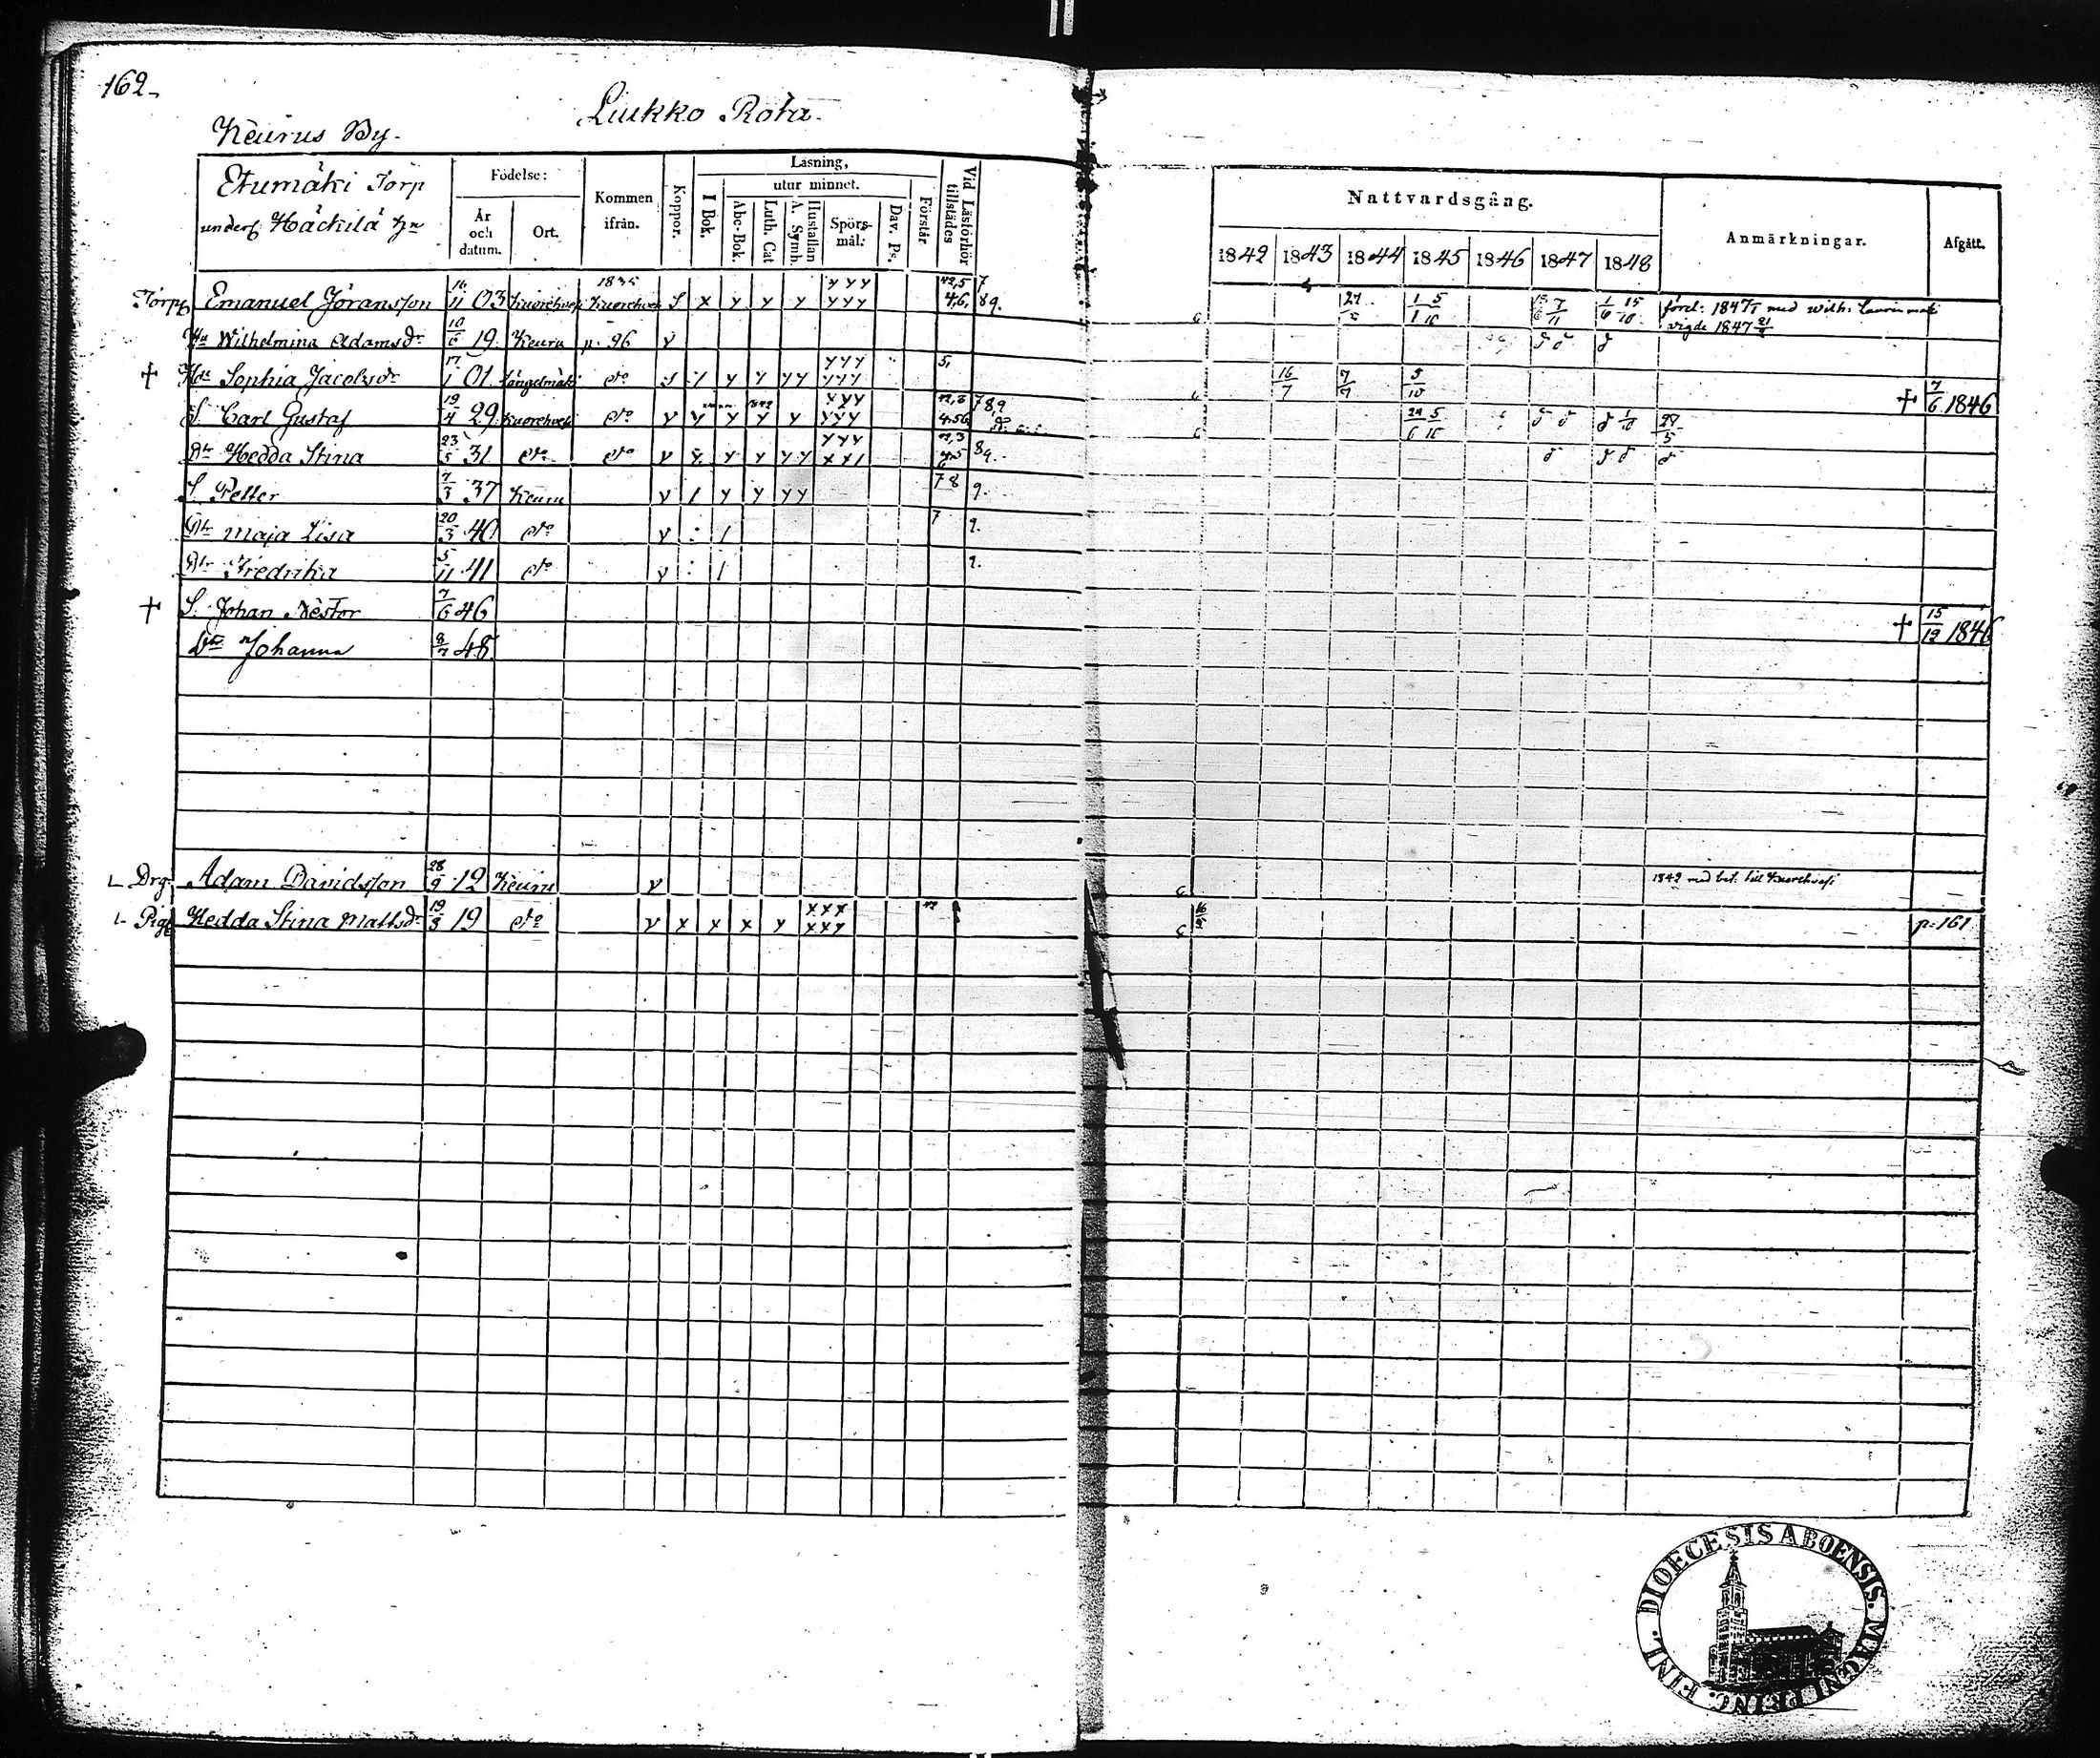 162.
Liukko Rota.
Keurus By.
Etumäki Torp
under Häckilä
Födelse:
År och datum.
Ort.
Kommen ifrån.
Koppor.
Läsning,
I Bok.
utur minnet.
Abc-Bok.
Luth. Cat
Hustaflan A. Symb.
Spörsmål:
Dav. Ps.
Förstår.
Vid Läsförhör tillstädes
Nattvardsgång.
1842 1843 1844 1845 1846 1847 1848
Anmärkningar.
Afgått.
Torp. Emanuel Jöransson 16/11 03 Kuorehvesi 1835 Kuorehvesi S x y y y y y y y y y 42,5 7 4,6, 89. 1/1 5/10 7/11 förel: 1847 med Wilh: vigde 1847
Hu Wilhelmina Adamsdr 10/6 19. Keuru p. 96 v
+ Hu Sophia Jacobsdr 17/1 01. Längelmäki dto y y y y y y y y y y 5, 16/7 7/7 5/10 + 7/6 1846
S. Carl Gustaf 19/4 29 Kuorehvesi dto v y y y y y y y y y 789 4.56 5/10
Dr Hedda Stina 23/5 31 dto dto v y y y y y y y 89.
S. Petter 7/3 37 Keuru v / y y y y 78 9.
Dr Maja Lisa 20/3 40 dto v : / 7 9.
Dr Fredrika 5/11 41 dto v : / 9.
+ S. Johan Nestor 7/6 46 + 15/12 1846
Dr Johanna 8/7 48.
Drg. Adam Davidsson 28/9 12 Keuru v 1842 med bet. till Kuorehvesi
Pig. Hedda Stina Mattsdr 19/3 19 dto v x x x y x x x x x y p. 161
DIOECESIS ABOENSIS. MAGNI PRINC. FINL.